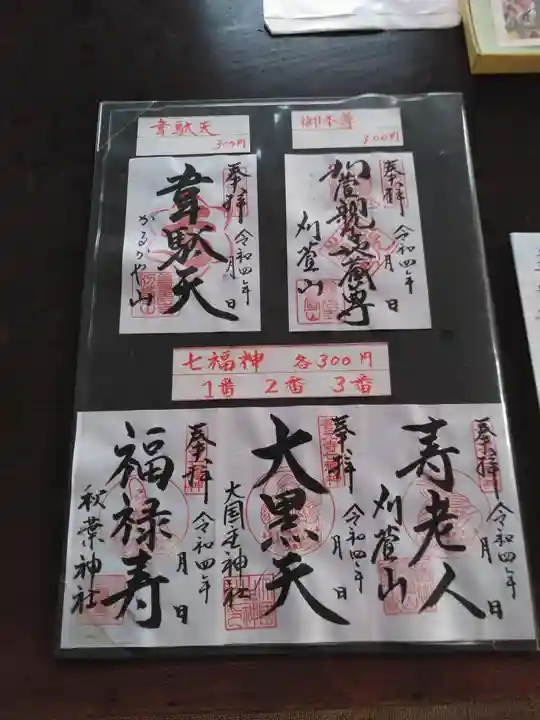 韋駄天
300円
御本尊
300円
奉拝
韋駄天
かるかや山
令和四年
月 日
奉拝
刈萱親子地蔵尊
刈萱山
令和四年
月 日
七福神 各300円
1番 2番 3番
奉拝
寿老人
刈萱山
令和四年
月 日
奉拝
大黒天
大国主神社
令和四年
月 日
奉拝
福禄寿
秋葉神社
令和四年
月 日